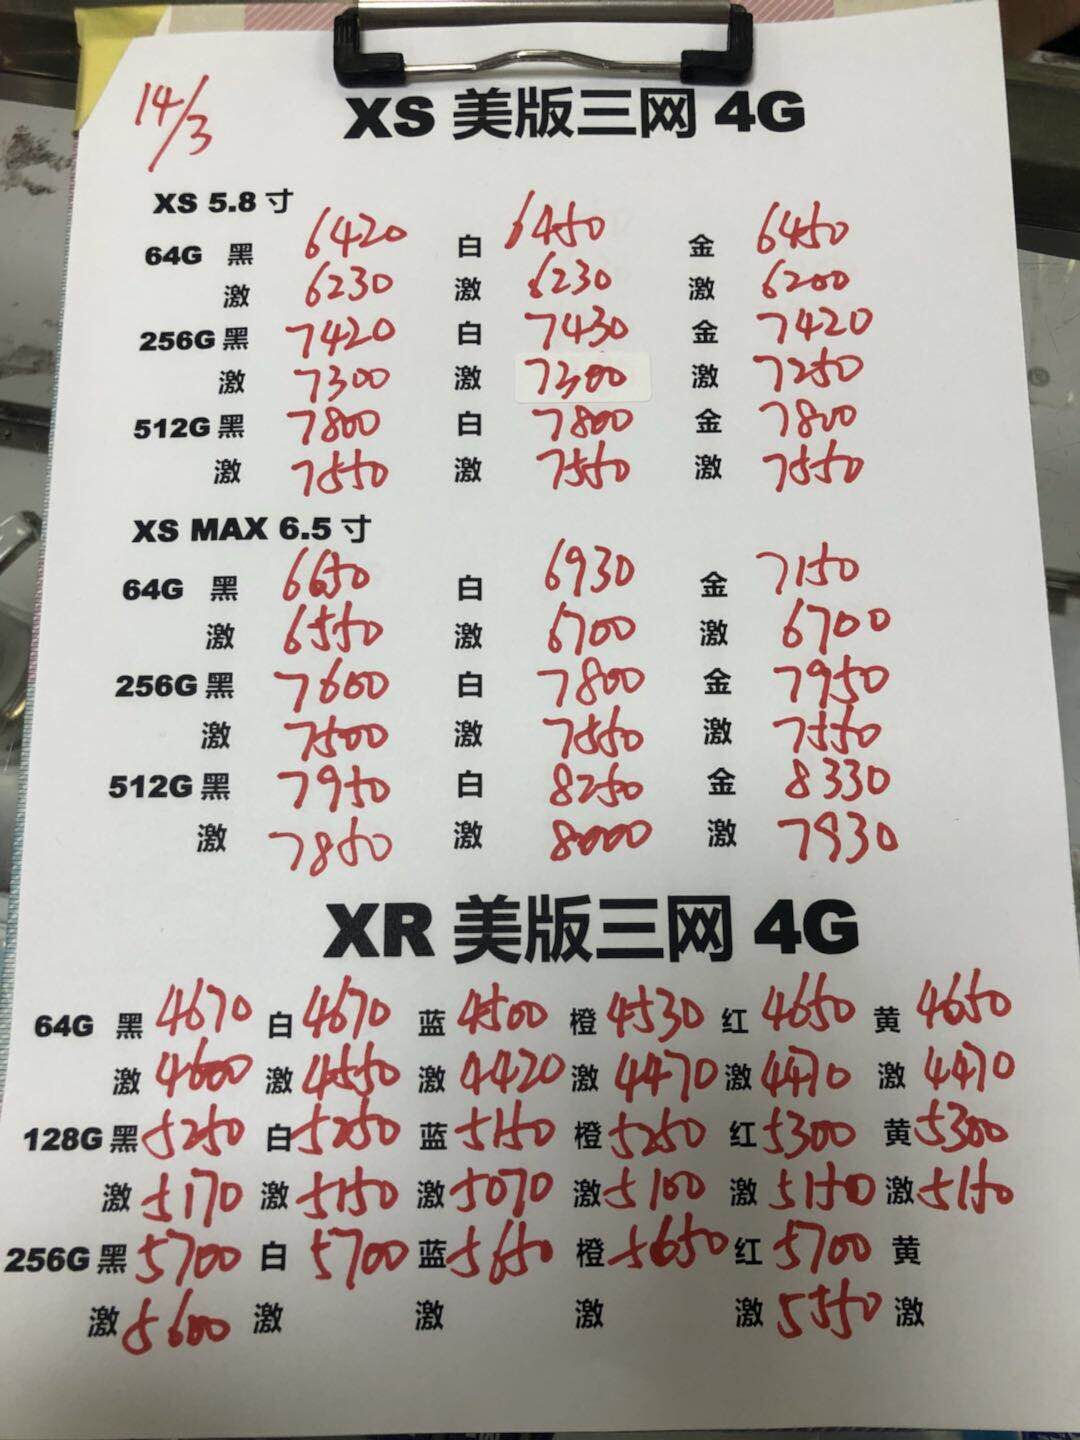 14/3
XS 美版三网 4G
XS 5.8 寸
64G 黑 6420 白 6450 金 6450
激 6230 激 6230 激 6200
256G 黑 7420 白 7430 金 7420
激 7300 激 7300 激 7250
512G 黑 7800 白 7800 金 7800
激 7550 激 7550 激 7550
XS MAX 6.5 寸
64G 黑 6650 白 6930 金 7150
激 6550 激 6700 激 6700
256G 黑 7600 白 7800 金 7950
激 7500 激 7550 激 7550
512G 黑 7950 白 8250 金 8330
激 7850 激 8000 激 7930
XR 美版三网 4G
64G 黑 4670 白 4670 蓝 4500 橙 4530 红 4650 黄 4650
激 4600 激 4550 激 4420 激 4470 激 4470 激 4470
128G 黑 5250 白 5250 蓝 5150 橙 5250 红 5300 黄 5300
激 5170 激 5150 激 5070 激 5100 激 5150 激 5150
256G 黑 5700 白 5700 蓝 5650 橙 5650 红 5700 黄
激 5600 激 激 激 激 5550 激